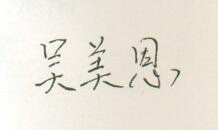 吴美恩